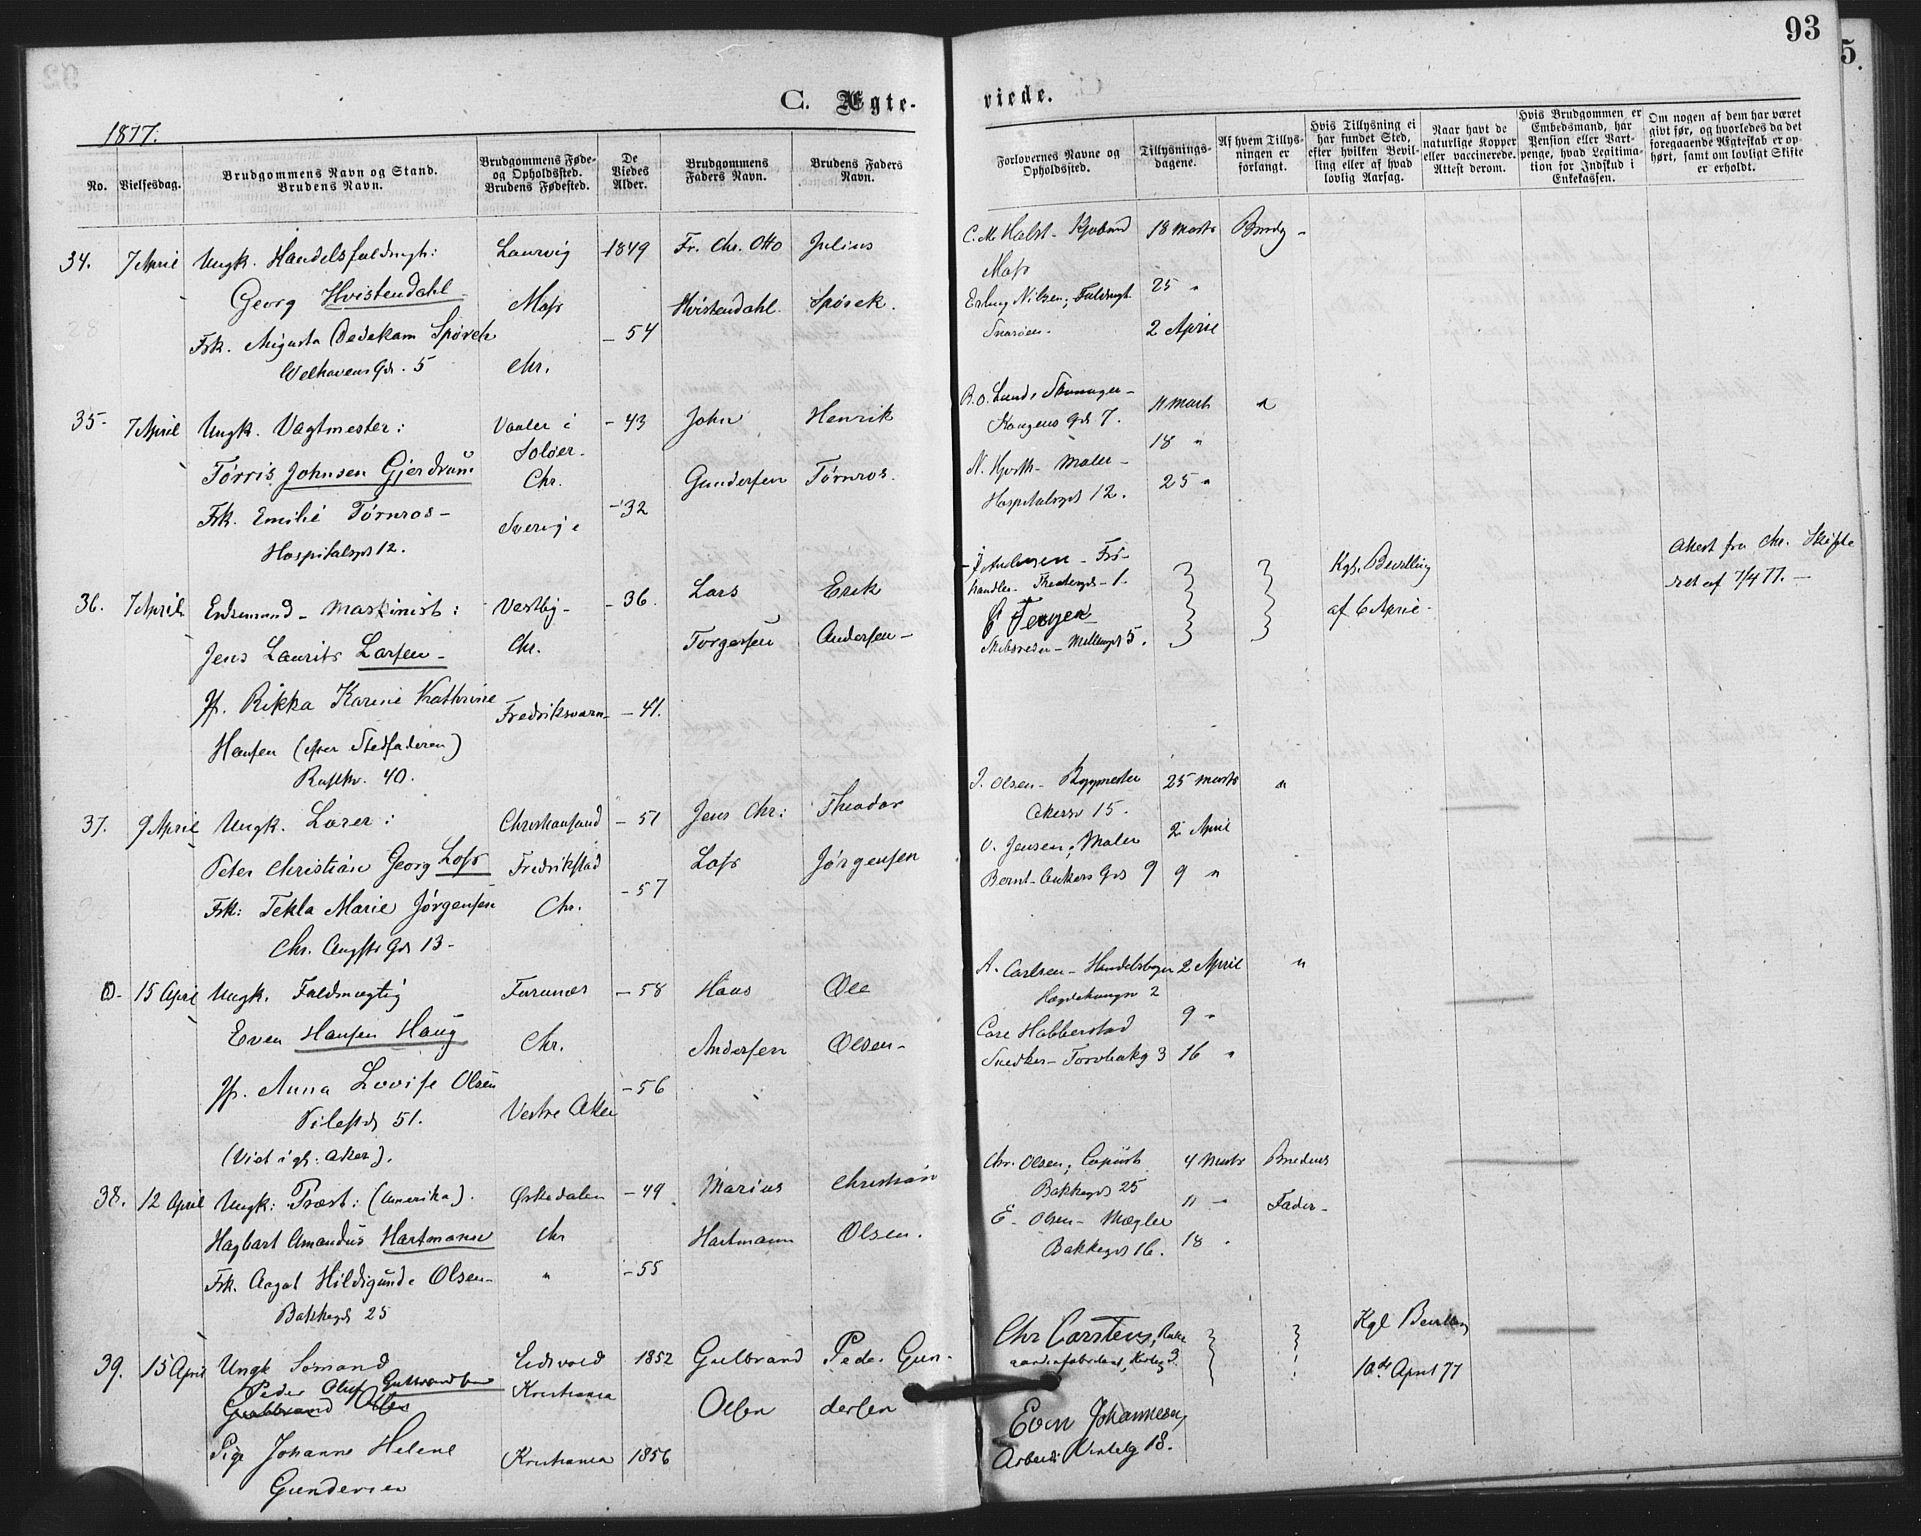 93
5.
C. Ægte-
viede.
1877.
No.
Vielsesdag.
Brudgommens Navn og Stand.
Brudens Navn.
Brudgommens Føde-
og Opholdssted.
Brudens Fødested.
De
Viedes
Alder.
Brudgommens
Faders Navn.
Brudens Faders
Navn.
Forlovernes Navne og
Opholdssted.
Tillysnings-
dagene.
Af hvem Tillys-
ningen er
forlangt.
Hvis Tillysning ei
har fundet Sted,
efter hvilken Bevil-
ling eller af hvad
lovlig Aarsag.
Naar havt de
naturlige Kopper
eller vaccinerede.
Attest derom.
Hvis Brudgommen er
Embedsmand, har
Pension eller Vart-
penge, hvad Legitima-
tion for Indskud i
Enkekassen.
Om nogen af dem har været
givt før, og hvorledes da det
foregaaende Ægteskab er op-
hørt, samt om lovligt Skifte
er erholdt.
34. 7 April Ungk. Handelsfuldmgt: Laurvig -1849 Fr. Chr. Otto Julius C. M. Holst - 18 Marts Brudg -
Georg Hvistendahl Moss Hvistendahl. Spørck. Moss
Erling Nilsen, Fuldmgt. 25 "
Frk. Augusta Dedekam Spørck - 54 Snarøen. 2 April
Welhavens Gd. 5 Chr.
35- 7 April Ungk. Vagtmester: Vaaler i - 43 John Henrik B. O. Lund, 11 Marts "
Solør. Kongens Gd 7. 18 "
Tørris Johnsen Gjerdrum Chr. Gundersen Tørnros. N. Hjorth - Maler -
Frk. Emilie Tørnros - Sverige - 32 Hospitalsgd 12. 25 "
Hospitalsgd 12.
36. 7 April Enkemand - Maskinist: Vestby - - 36. Lars Erik handler - Theatergd - 1. Kgl. Bevilling Attest fra Chr. Skifte
ret af 7/4 77. -
Jens Laurits Larsen - Chr. Torgersen Andersen - af 6 April -
Møllergd 5.
Pf. Rikka Karine Kathrine Fredriksværn - 41.
Hansen (efter Stedfaderen)
40.
37. 9 April Ungk. Lærer: Christiansand - 51 Jens Chr: Theodor J. Olsen - Bygmester 25 Marts "
Akersv 15.
Peter Christian Georg Lofs Fredrikstad Lofs Jørgensen O. Jensen, Maler 2 April
Frk: Tekla Marie Jørgensen Chr. - 57 Bernt Ankers Gd 9 9 "
Chr. Augsts Gd 13 -
0- 15 April Ungk. Fuldmægtig Furunæs - 58 Hans Ole A. Carlsen - 2 April "
Hægdehaugv 2
Even Hansen Haug Chr. Andersen Olsen - Carl Habberstad 9 "
Snedker - Torvbakg 3 16 "
Pf. Anna Lovise Olsen Vestre Aker - 56
Pilestd 51.
(Viet i gl: Aker).
38. 12 April Ungk: Præst: (Amerika). Ørkedalen - 49 Marius Christian Chr. Olsen, Copiist 4 Marts Brudens
Bakkegd 25
Hagbart Amandus Hartmann Chr Hartmann Olsen. E - Olsen - Mægler 11 " Fader -
Bakkegd 16. 18 "
Frk. Aagot Hildigunde Olsen - " - 55
Bakkegd 25
39. 15 April Ungk Sømand Eidsvold 1852 Gulbrand Peder Gun- Chr Carstens, Kgl Bevilling
Peder Oluf Gulbrandsen Kristiania Olsen dersen 10de April 77
Gulbrand Olsen
Even Johannesen,
Pige Johanne Helene Kristiania 1856 Arbeid. Vintelg 18.
Gundersen